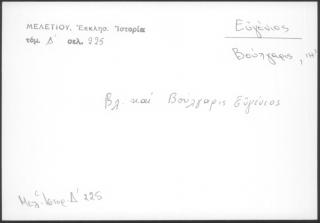 ΜΕΛΕΤΙΟΥ, Ἐκκλησ. Ἱστορία
τόμ. Δ΄ σελ. 225
Εὐγένιος
Βούλγαρις, ιη΄
Βλ. καί Βούλγαρις Εὐγένιος
Μελ. Ἱστορ. Δ΄ 225